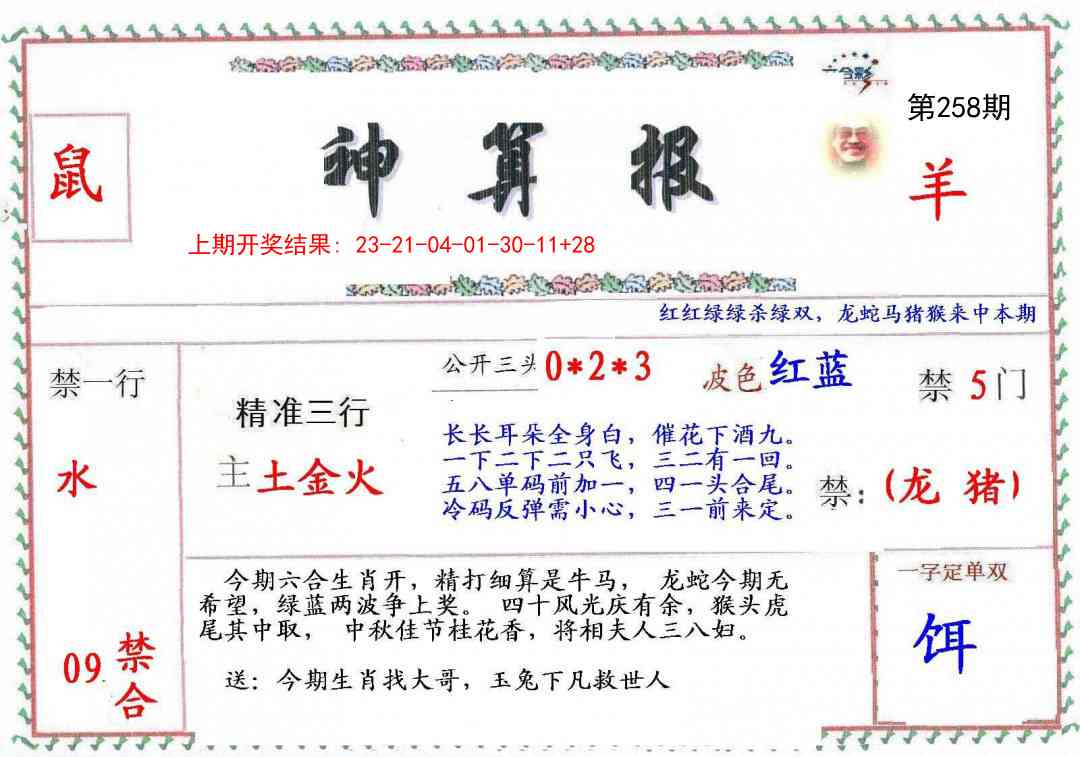 六合彩
第258期
鼠
神算报
羊
上期开奖结果: 23-21-04-01-30-11+28
红红绿绿杀绿双，龙蛇马猪猴来中本期
禁一行
水
09
禁合
精准三行
主土金火
公开三头 0*2*3
波色 红蓝
长长耳朵全身白，催花下酒九。
一下二下二只飞，三二有一回。
五八单码前加一，四一头合尾。
冷码反弹需小心，三一前来定。
禁 5 门
禁：(龙 猪)
今期六合生肖开，精打细算是牛马， 龙蛇今期无
希望，绿蓝两波争上奖。 四十风光庆有余，猴头虎
尾其中取， 中秋佳节桂花香，将相夫人三八妇。
送：今期生肖找大哥，玉兔下凡救世人
一字定单双
饵